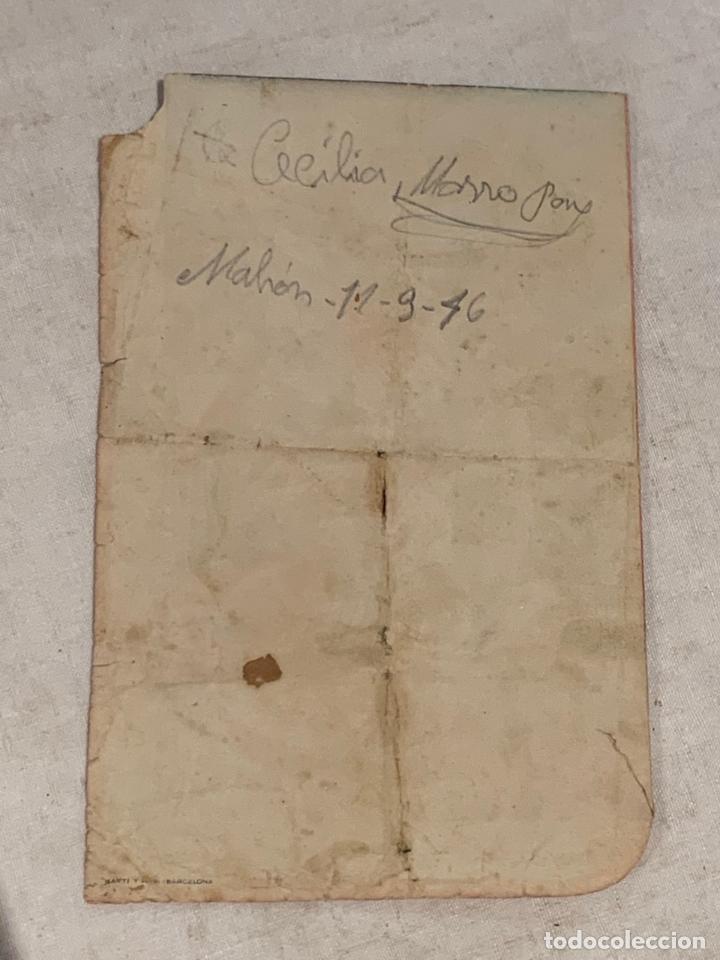 Cecilia Morro Pons
Mahón - 11-9-46
BARCELONA
todocoleccion